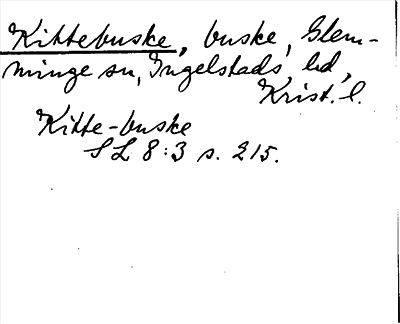 Kittebuske, buske, Glem-
minge sn, Ingelstads hd,
Krist. l.
Kitte-buske
SL 8:3 s. 215.